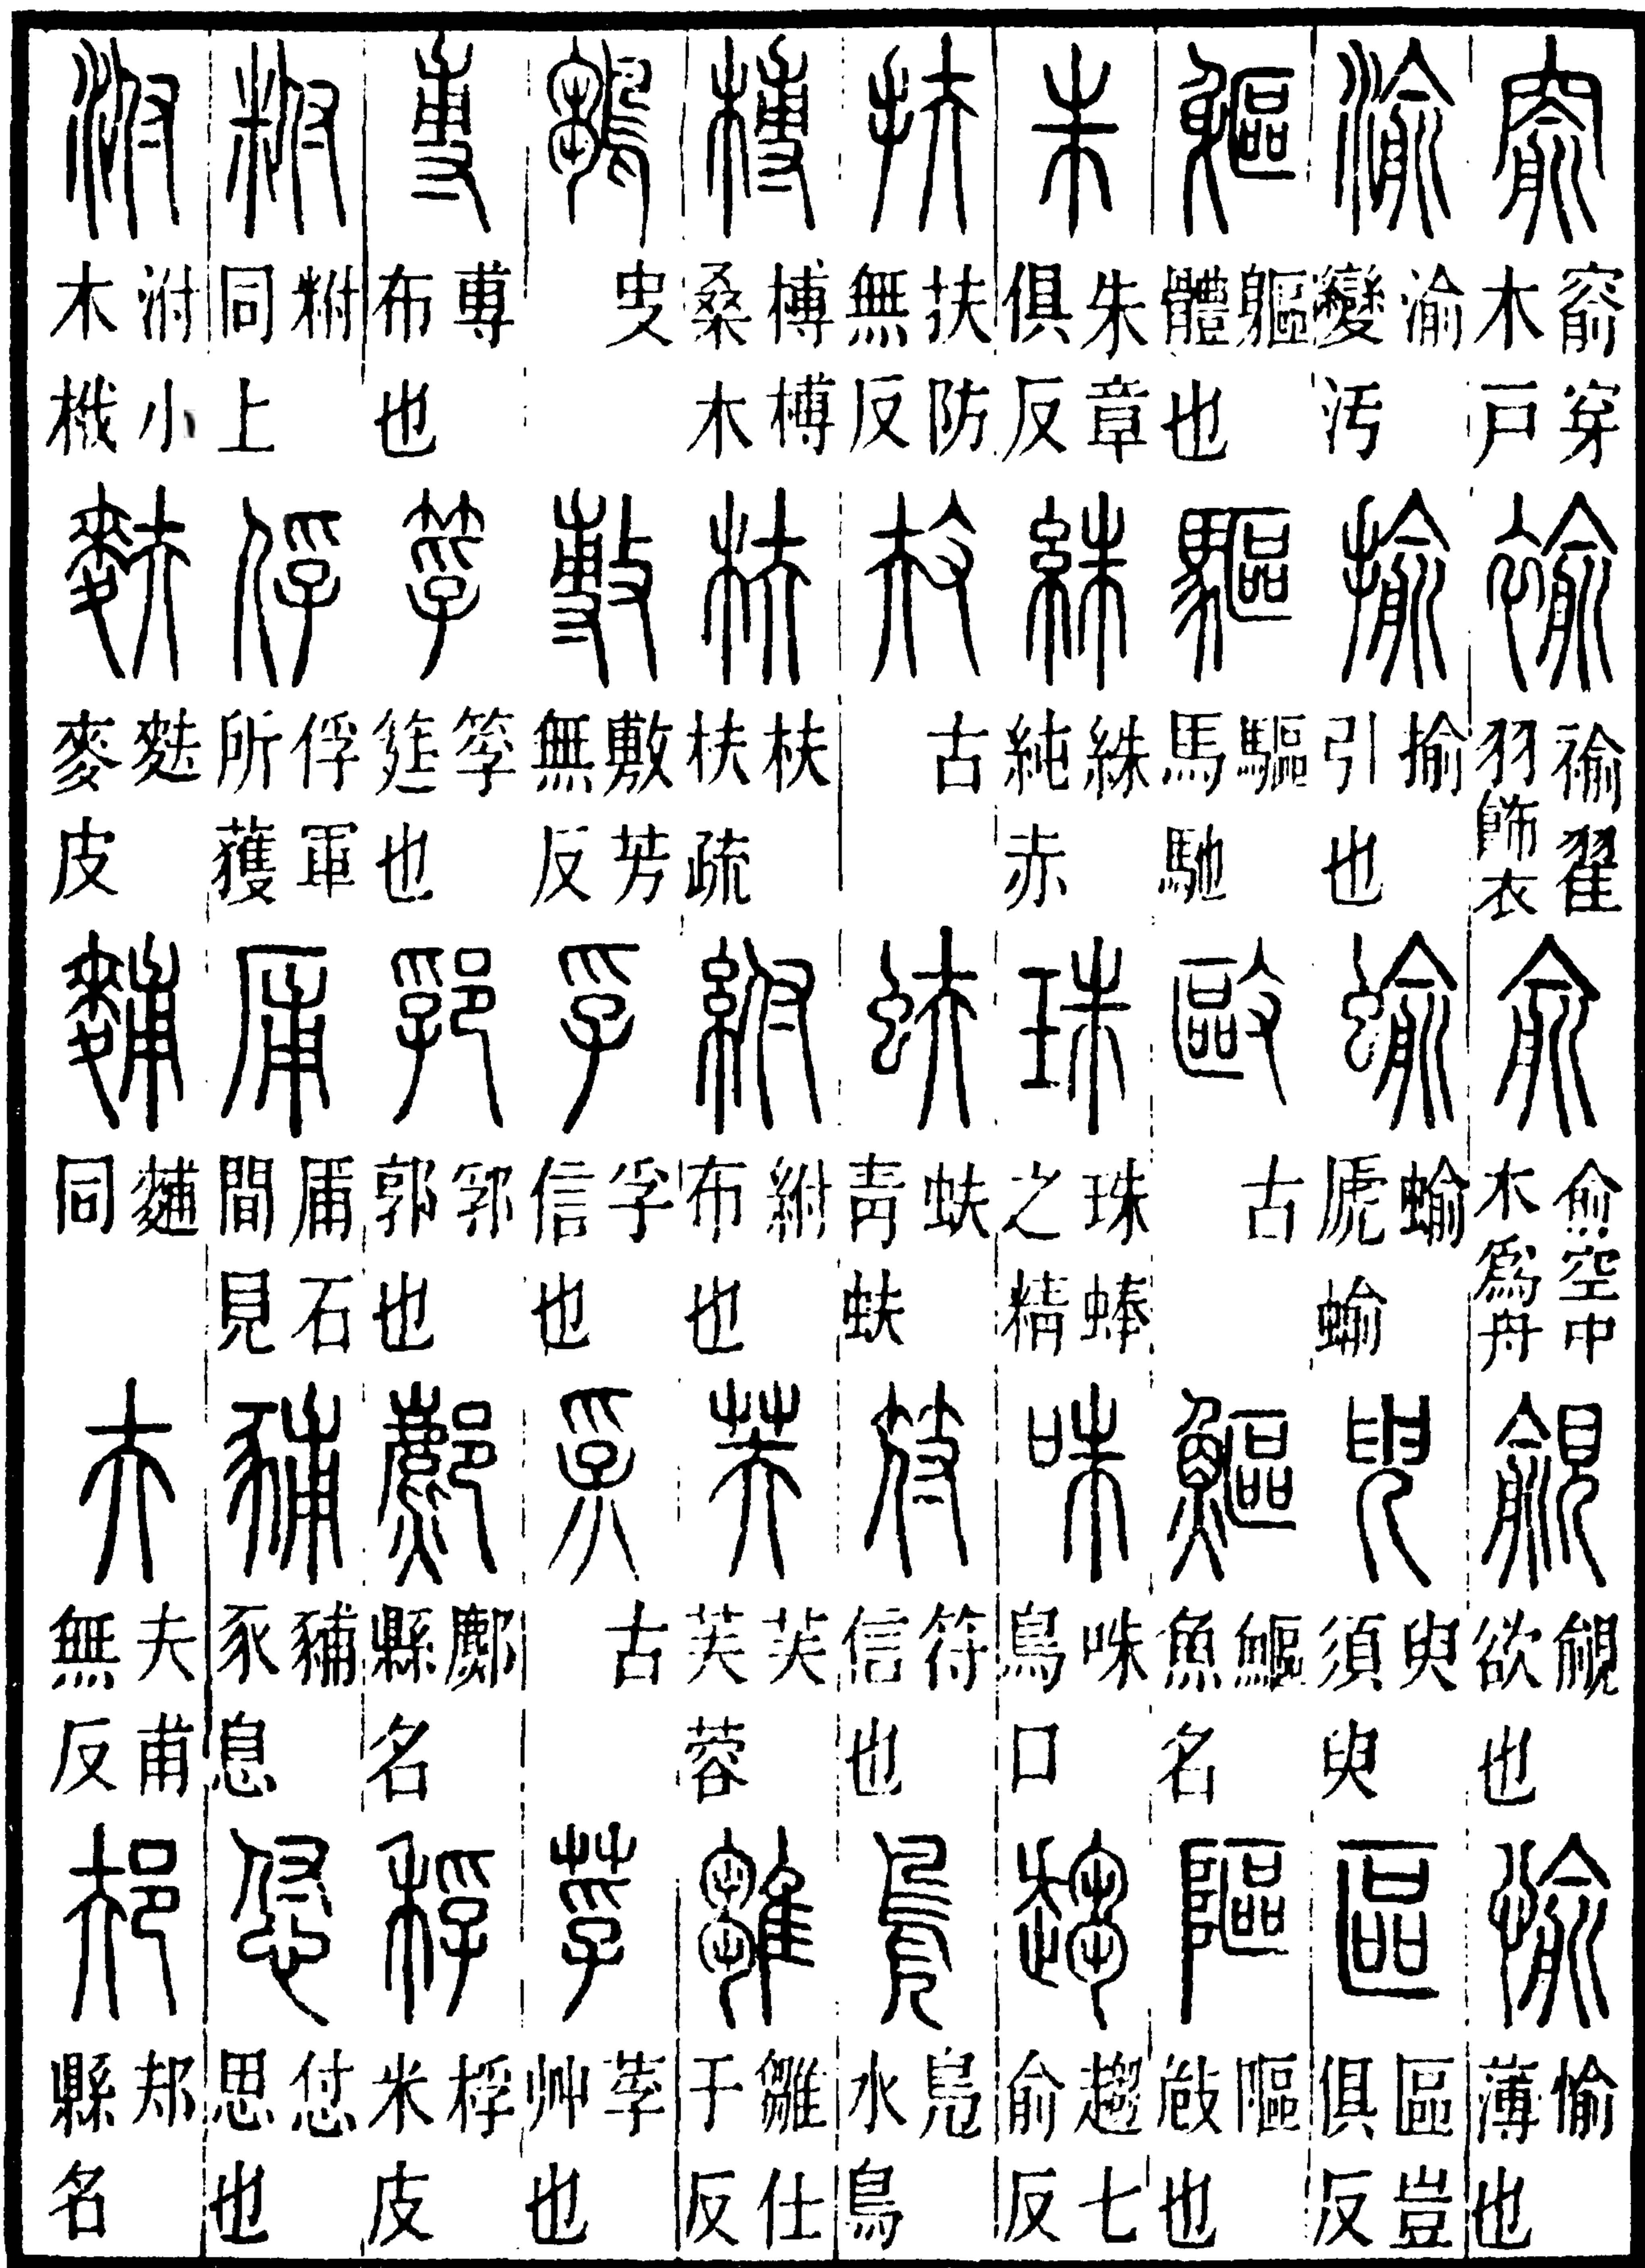 窬 窬穿木戶 褕 褕翟羽飾衣 俞 俞空中木爲舟 覦 覦欲也 愉 愉薄也
渝 渝變汚 揄 揄引也 蝓 蝓虒蝓 臾 臾須臾 區 區豈俱反
軀 軀體也 驅 驅馬馳 敺 古 鰸 鰸魚名 䧢 䧢敧也
朱 朱章俱反 絑 絑純赤 珠 珠蜯之精 咮 咮鳥口 趨 趨七俞反
扶 扶防無反 古 蚨 蚨青蚨 符 符信也 鳧 鳧水鳥
榑 榑榑桑木 枎 枎枎疏 紨 紨布也 芙 芙芙蓉 雛 雛仕于反
鶵 敷 敷芳無反 孚 孚信也 古 莩 莩艸也
尃 尃布也 筟 筟筳也 郛 郛郭也 鄜 鄜縣名 稃 稃米皮
同上 俘 俘軍所獲 㕊 㕊石間見 豧 豧豕息 怤 怤思也
泭 泭小木栰 麩 麩麥皮 麱 麱同 夫 夫甫無反 邞 邞縣名